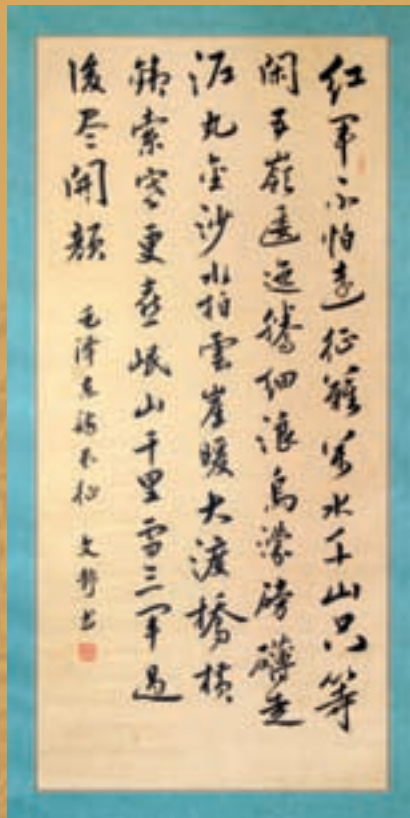 红军不怕远征難万水千山只等
闲五嶺逶迤腾细浪烏濛磅礴走
泥丸金沙水拍雲崖暖大渡橋横
鐵索寒更喜岷山千里雪三军过
後尽開颜
毛泽东诗长征 文静书